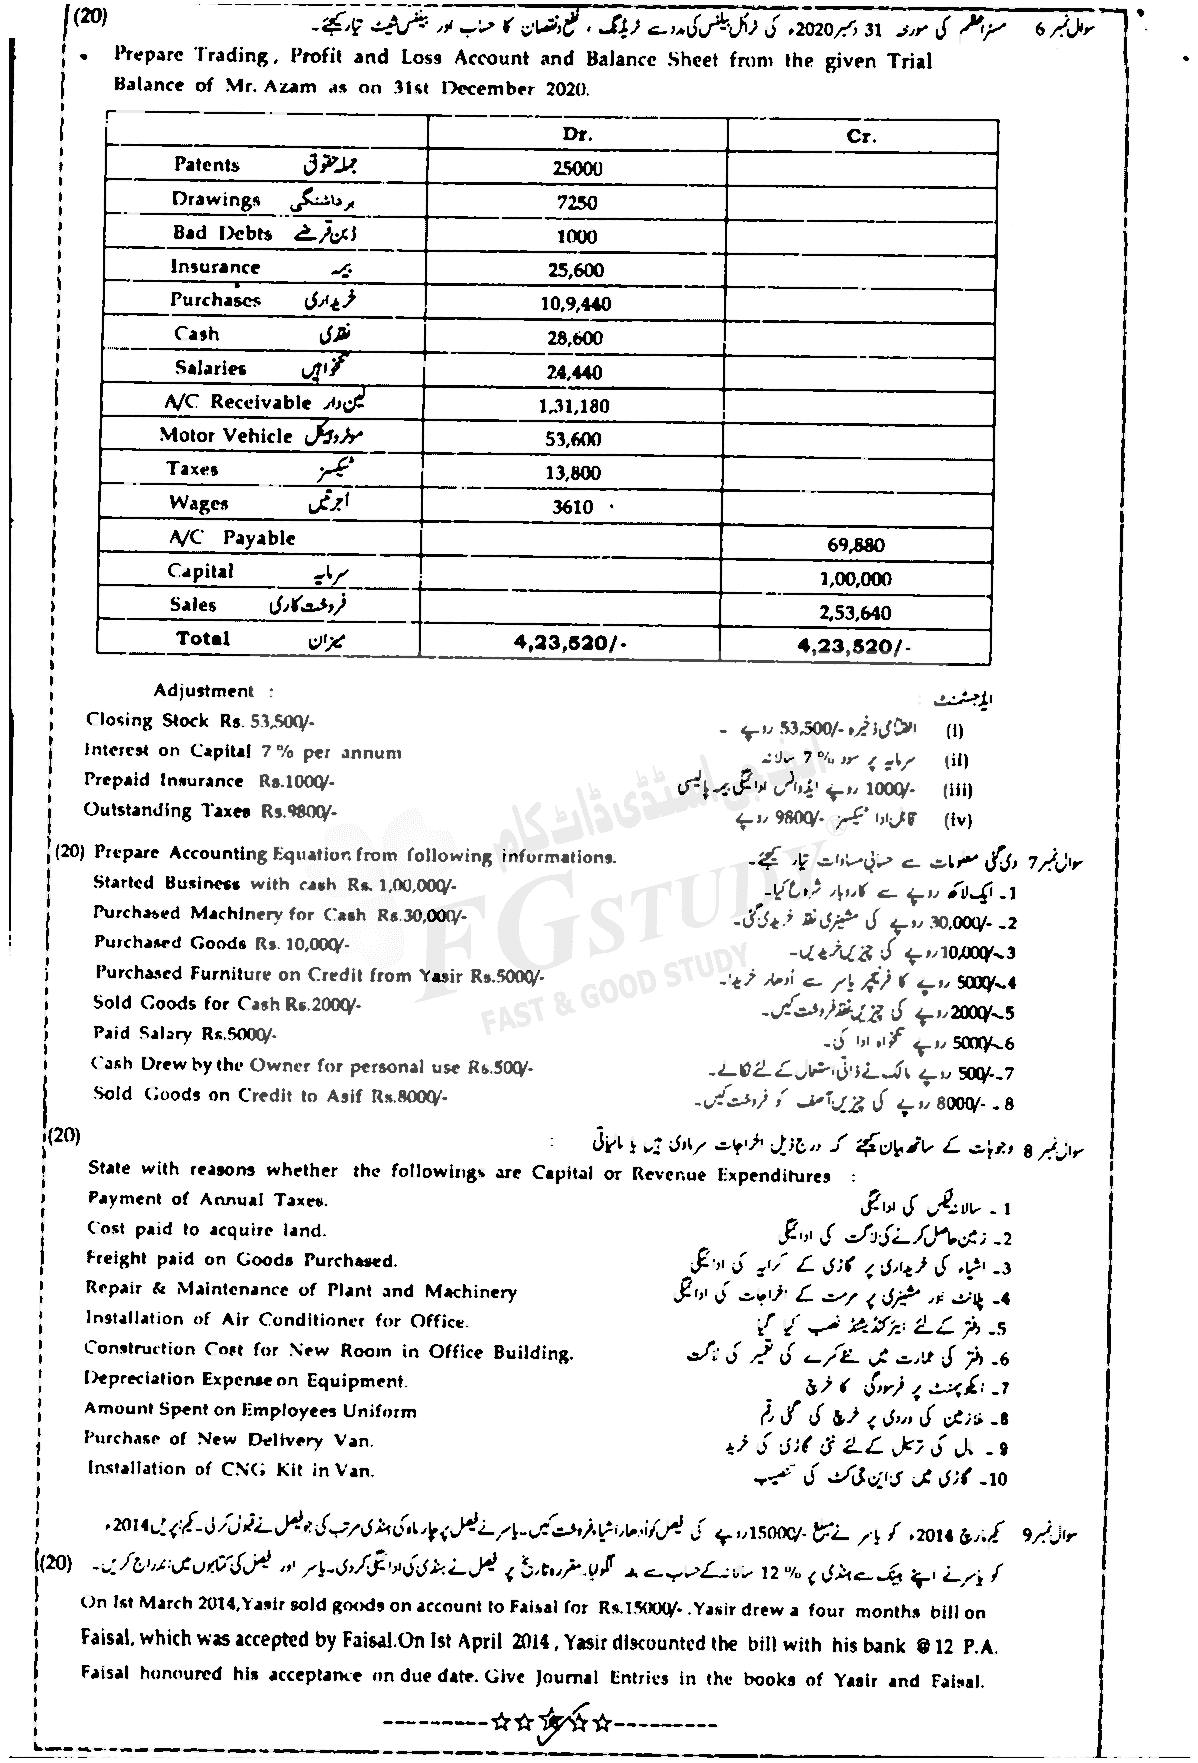 (20) سوال نمبر 6 مسٹر اعظم کی مورخہ 31 دسمبر 2020ء کی ٹرائل بیلنس کی مدد سے ٹریڈنگ ، نفع و نقصان کا حساب اور بیلنس شیٹ تیار کیجئے۔
Prepare Trading, Profit and Loss Account and Balance Sheet from the given Trial
Balance of Mr. Azam as on 31st December 2020.
Dr. Cr.
Patents جملہ حقوق 25000
Drawings برداشتگی 7250
Bad Debts ڈوبن قرضے 1000
Insurance بیمہ 25,600
Purchases خریداری 10,9,440
Cash نقدی 28,600
Salaries تنخواہیں 24,440
A/C Receivable لین دار 1,31,180
Motor Vehicle موٹر وہیکل 53,600
Taxes ٹیکسز 13,800
Wages اجرتیں 3610
A/C Payable 69,880
Capital سرمایہ 1,00,000
Sales فروخت کاری 2,53,640
Total میزان 4,23,520/- 4,23,520/-
Adjustment : ایڈجسٹمنٹ :
Closing Stock Rs. 53,500/- (i) اختتامی ذخیرہ -/53,500 روپے ۔
Interest on Capital 7% per annum (ii) سرمایہ پر سود 7% سالانہ
Prepaid Insurance Rs.1000/- (iii) -/1000 روپے ایڈوانس ادائیگی بیمہ پالیسی
Outstanding Taxes Rs.9800/- (iv) قابل ادا ٹیکسز -/9800 روپے
ایف جی اسٹڈی ڈاٹ کام
FG STUDY
FAST & GOOD STUDY
(20) Prepare Accounting Equation from following informations. سوال نمبر 7 دی گئی معلومات سے حسابی مساوات تیار کیجئے۔
Started Business with cash Rs. 1,00,000/- 1۔ ایک لاکھ روپے سے کاروبار شروع کیا۔
Purchased Machinery for Cash Rs.30,000/- 2۔ -/30,000 روپے کی مشینری نقد خریدی گئی۔
Purchased Goods Rs. 10,000/- 3۔ -/10,000 روپے کی چیزیں خریدیں۔
Purchased Furniture on Credit from Yasir Rs.5000/- 4۔ -/5000 روپے کا فرنیچر یاسر سے اُدھار خریدا۔
Sold Goods for Cash Rs.2000/- 5۔ -/2000 روپے کی چیزیں نقد فروخت کیں۔
Paid Salary Rs.5000/- 6۔ -/5000 روپے تنخواہ ادا کی۔
Cash Drew by the Owner for personal use Rs.500/- 7۔ -/500 روپے مالک نے ذاتی استعمال کے لئے نکالے۔
Sold Goods on Credit to Asif Rs.8000/- 8۔ -/8000 روپے کی چیزیں آصف کو فروخت کیں۔
(20) سوال نمبر 8 وجوہات کے ساتھ بیان کیجئے کہ درج ذیل اخراجات سرمادی ہیں یا مامیاتی :
State with reasons whether the followings are Capital or Revenue Expenditures :
Payment of Annual Taxes. 1۔ سالانہ ٹیکس کی ادائیگی
Cost paid to acquire land. 2۔ زمین حاصل کرنے کی لاگت کی ادائیگی
Freight paid on Goods Purchased. 3۔ اشیاء کی خریداری پر گاڑی کے کرایہ کی ادائیگی
Repair & Maintenance of Plant and Machinery 4۔ پلانٹ اور مشینری پر مرمت کے اخراجات کی ادائیگی
Installation of Air Conditioner for Office. 5۔ دفتر کے لئے ایئرکنڈیشنڈ نصب کیا گیا
Construction Cost for New Room in Office Building. 6۔ دفتر کی عمارت میں نئے کمرے کی تعمیر کی لاگت
Depreciation Expense on Equipment. 7۔ ایکوپمنٹ پر فرسودگی کا خرچ
Amount Spent on Employees Uniform 8۔ ملازمین کی وردی پر خرچ کی گئی رقم
Purchase of New Delivery Van. 9۔ مال کی ترسیل کے لئے نئی گاڑی کی خرید
Installation of CNG Kit in Van. 10۔ گاڑی میں سی این جی کٹ کی تنصیب
سوال نمبر 9 یکم مارچ 2014ء کو یاسر نے مبلغ -/15000 روپے کی فیصل کو ادھار اشیاء فروخت کیں۔ یاسر نے فیصل پر چار ماہ کی ہنڈی مرتب کی جو فیصل نے قبول کرلی۔ یکم اپریل 2014ء
(20) کو یاسر نے اپنے بینک سے ہنڈی پر 12% سالانہ کے حساب سے بٹہ لگوایا۔ مقررہ تاریخ پر فیصل نے ہنڈی کی ادائیگی کردی۔ یاسر اور فیصل کی کتابوں میں اندراج کریں۔
On 1st March 2014, Yasir sold goods on account to Faisal for Rs.15000/-. Yasir drew a four months bill on
Faisal, which was accepted by Faisal. On 1st April 2014, Yasir discounted the bill with his bank @12 P.A.
Faisal honoured his acceptance on due date. Give Journal Entries in the books of Yasir and Faisal.